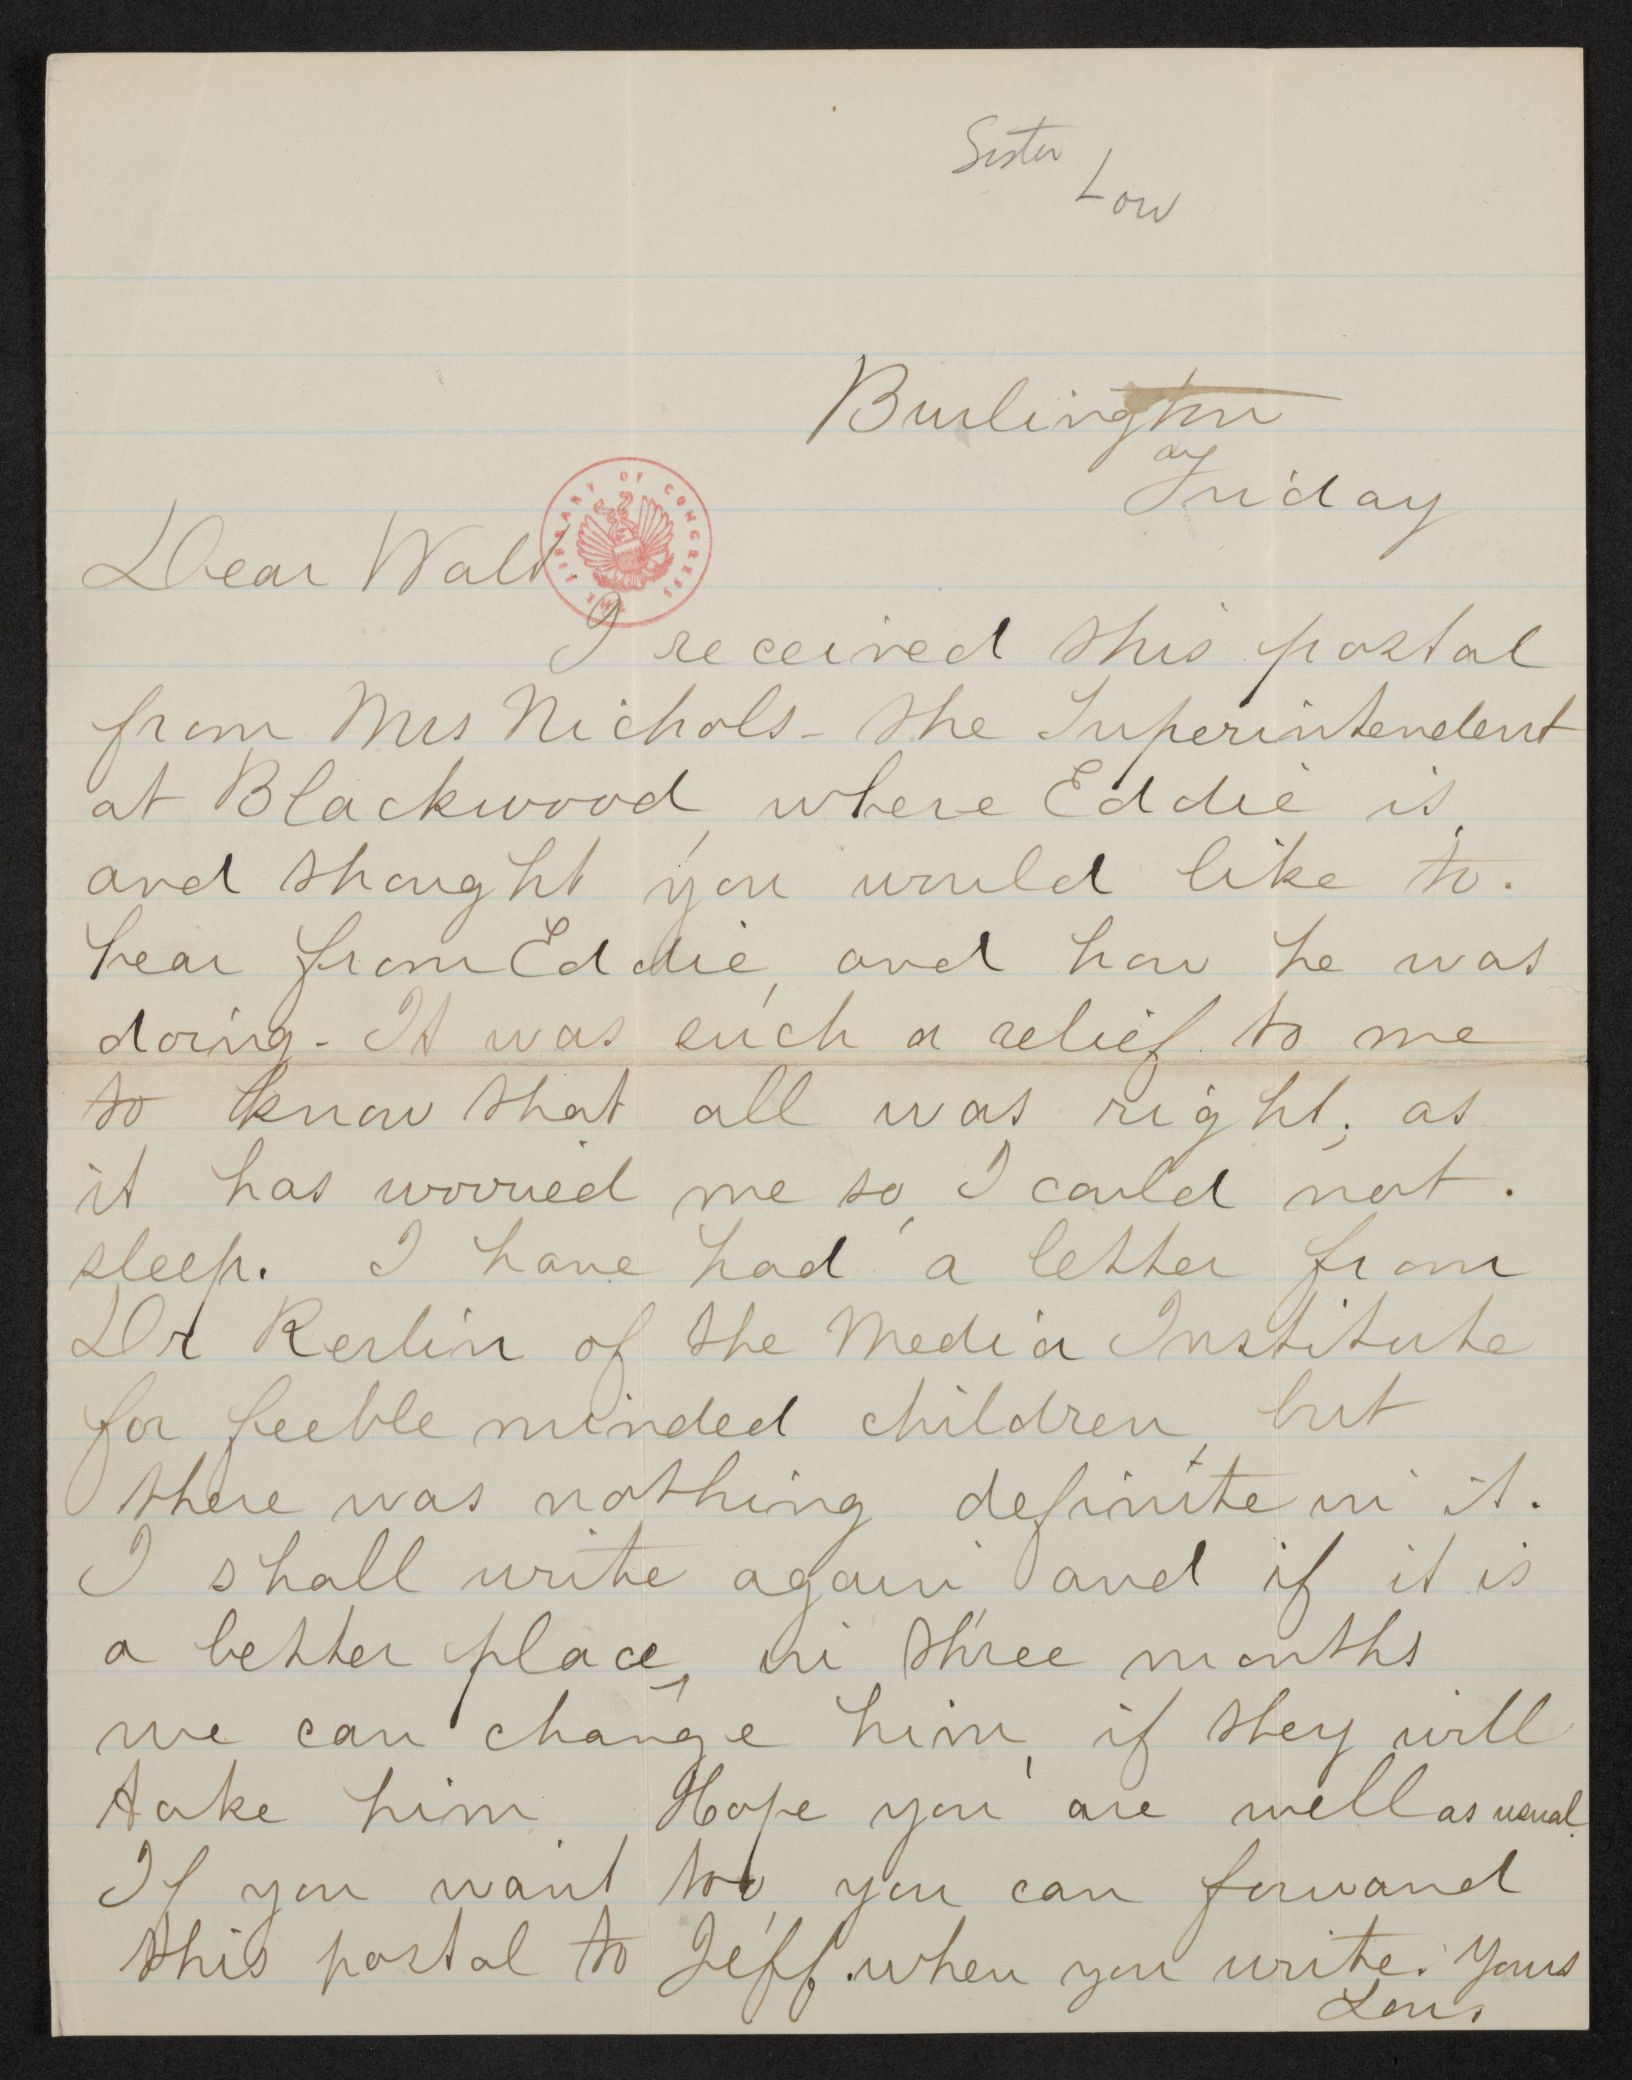 Sister
Lou
Burlington
Friday
THE LIBRARY OF CONGRESS
Dear Walt.
I received this postal
from Mrs Nichols - the Superintendent
at Blackwood, where Eddie is,
and thought you would like to.
hear from Eddie, and how he was
doing - It was such a relief to me
to know that all was right; as
it has worried me so, I could not.
sleep. I have had a letter from
Dr Kerlin of the Media Institute
for feeble minded children, but
there was nothing definite in it.
I shall write again and if it is
a better place, in three months
we can change him, if they will
take him Hope you are well as usual.
If you want too, you can forward
this postal to Jeff. when you write. Yours
Lou.